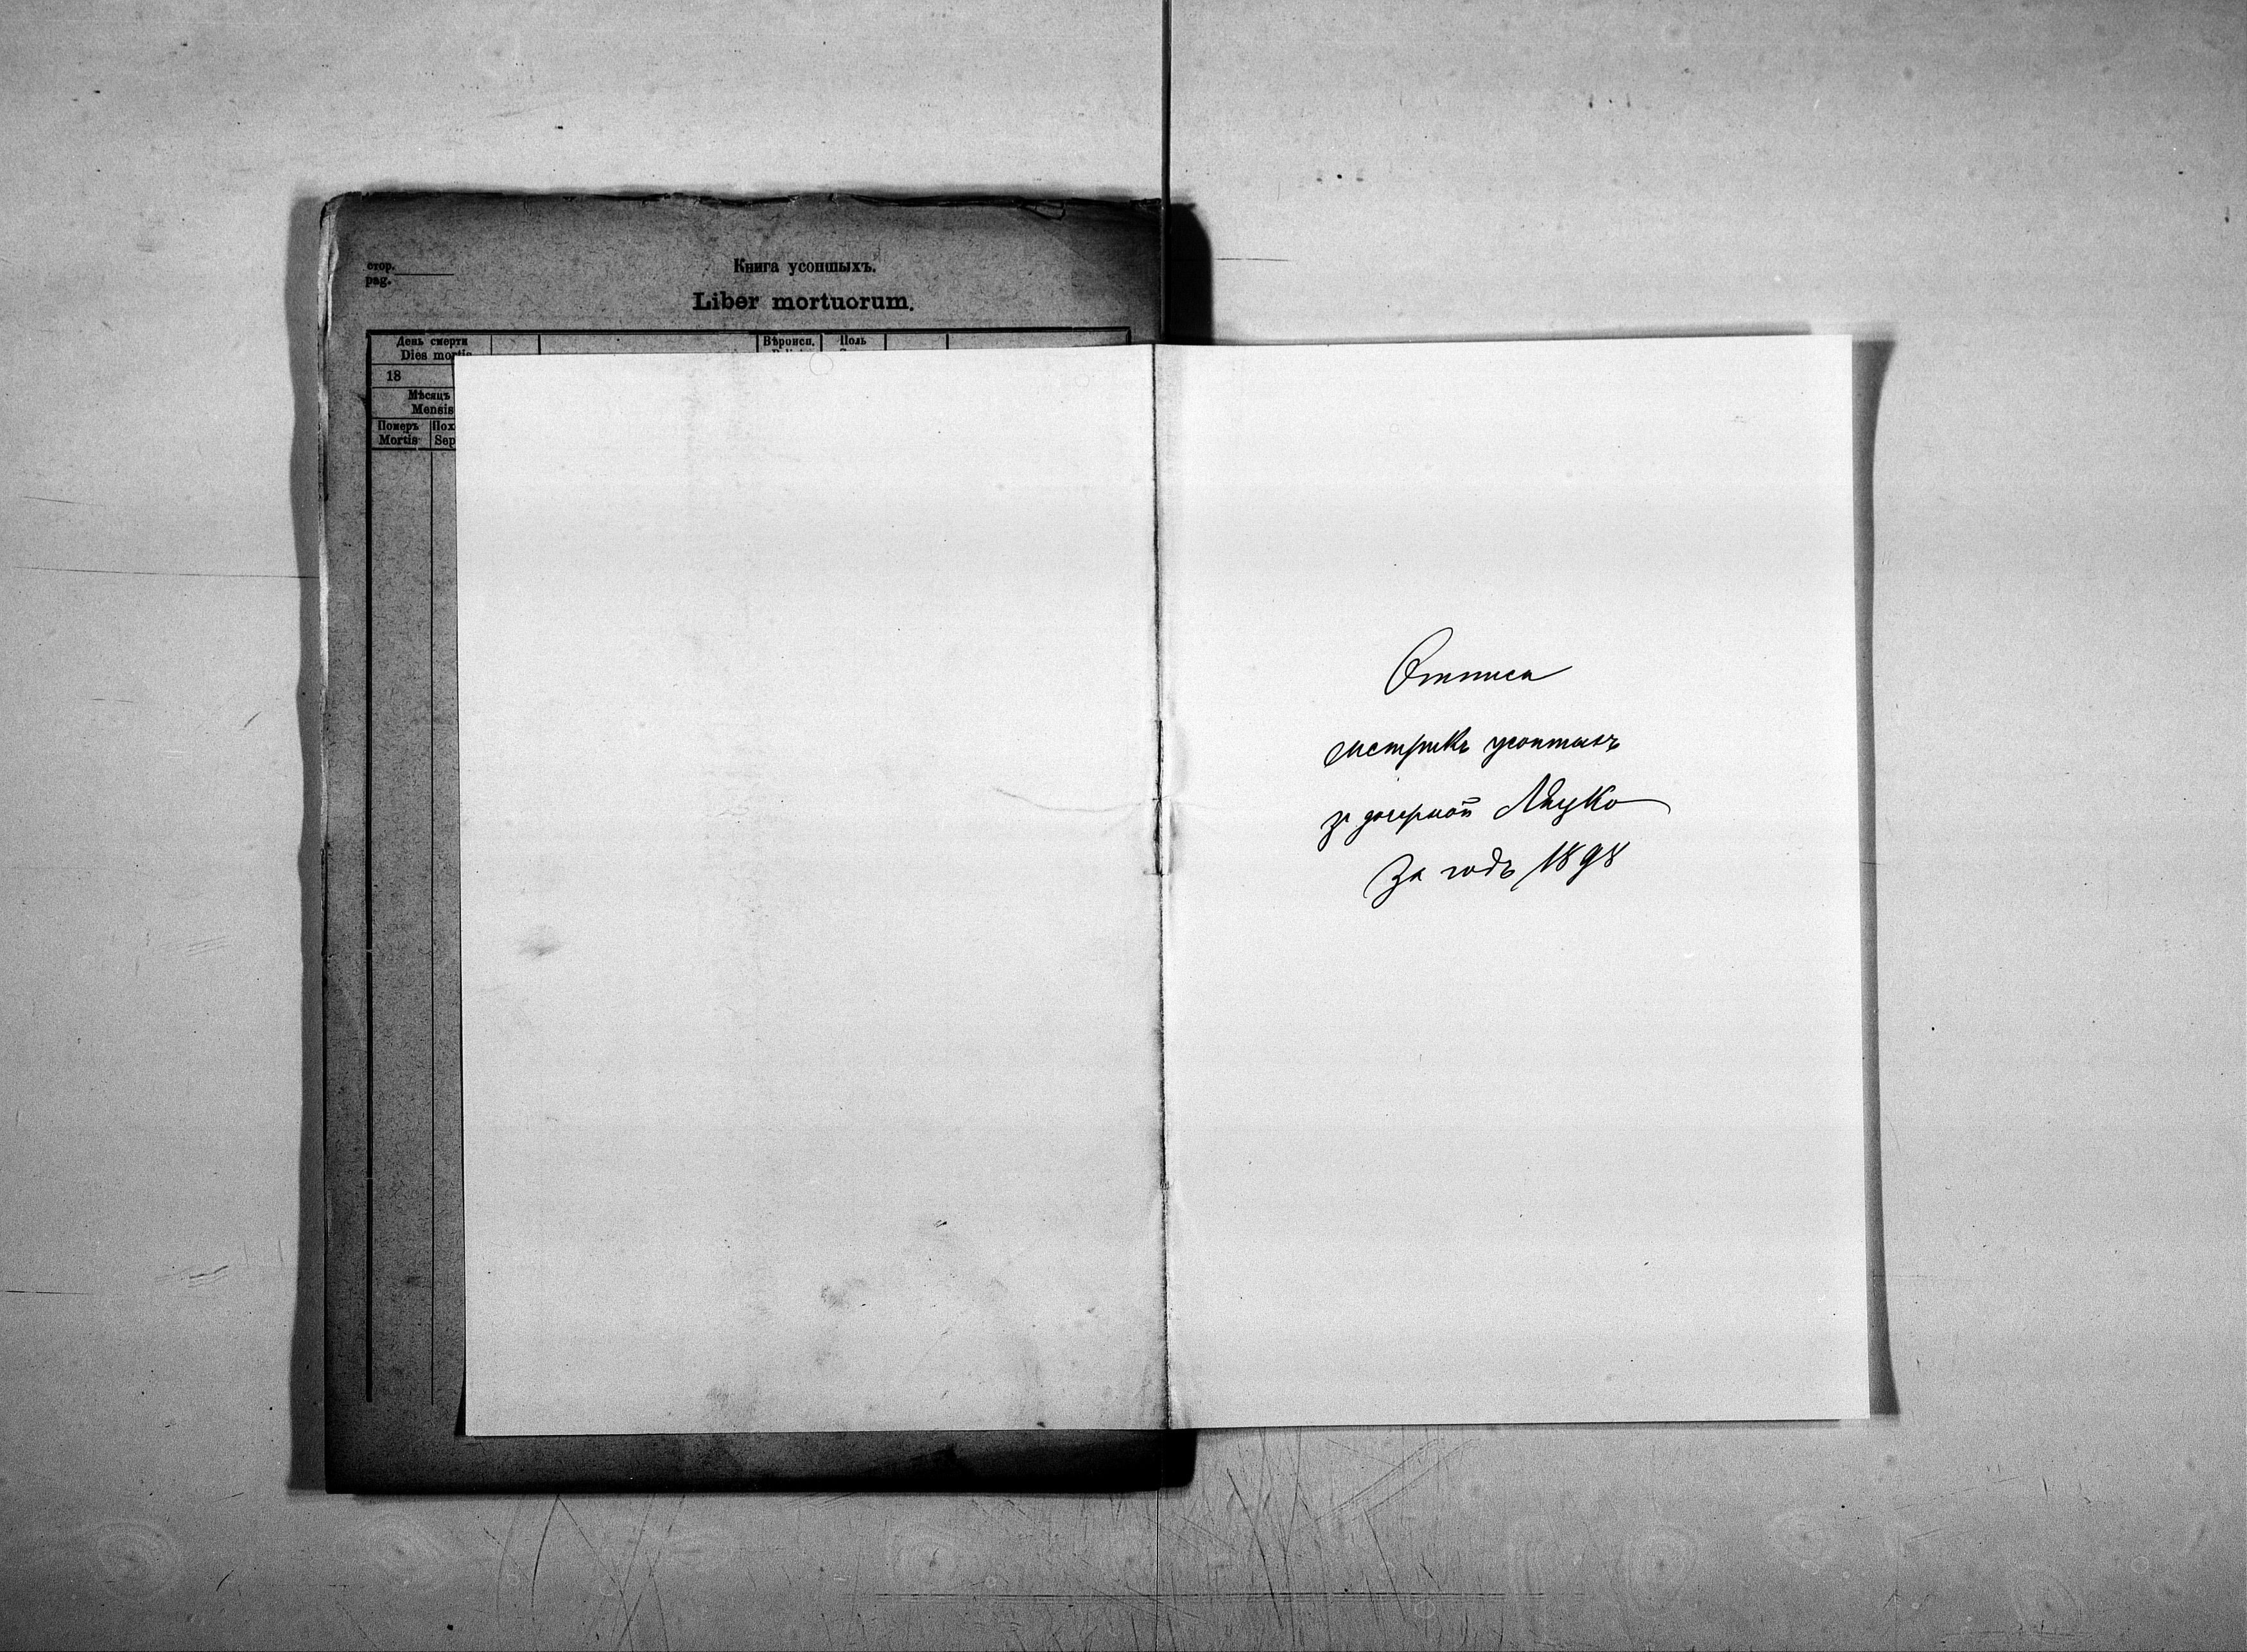 стор.
pag.
Книга усопшыхъ.
Liber mortuorum.
День смерти
Dies mortis
Вѣроисп.
Полъ
18
Мѣсяцъ
Mensis
Померъ Пох
Mortis Sep
Отписи
метрикъ усопшыхъ
зъ дочерной
За годъ 1898